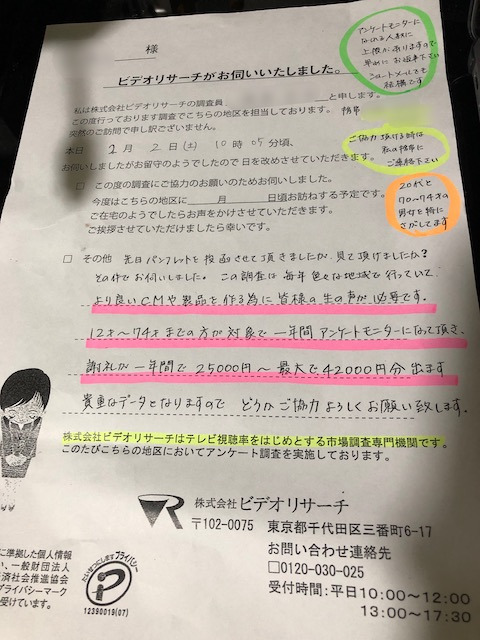 様
ビデオリサーチがお伺いいたしました。
アンケートモニターに
なれる人数に
上限がありますので
早めにお返事下さい
ショートメールでも
結構です
私は株式会社ビデオリサーチの調査員
と申します。
この度行っております調査でこちらの地区を担当しております。
携帯
突然のご訪問で申し訳ございません。
本日 2月 2日(土) 10時05分頃、
お伺いしましたがお留守のようでしたので 日を改めさせていただきます。
ご協力頂ける時は
私の携帯に
ご連絡下さい
□ この度の調査にご協力のお願いのためお伺いしました。
今度はこちらの地区に 月 日頃お訪ねする予定です。
ご在宅のようでしたらお声をかけさせていただきます。
ご挨拶させていただけましたら幸いです。
20代と
70〜74才の
男女を特に
さがしてます
□ その他 先日パンフレットを投函させて頂きましたが、見て頂けましたか?
その件でお伺いしました。この調査は毎年色々な地域で行っていて
より良いCMや製品を作る為に皆様の生の声が必要です。
12才〜74才までの方が対象で一年間アンケートモニターになって頂き、
謝礼が一年間で25000円〜最大で42000円分出ます
貴重なデータとなりますので どうかご協力よろしくお願い致します。
株式会社ビデオリサーチはテレビ視聴率をはじめとする市場調査専門機関です。
このたびこちらの地区においてアンケート調査を実施しております。
株式会社ビデオリサーチ
〒102-0075 東京都千代田区三番町6-17
お問い合わせ連絡先
□0120-030-025
受付時間:平日10:00〜12:00
13:00〜17:30
に準拠した個人情報
、一般財団法人
経済社会推進協会
プライバシーマーク
受けています。
たいせつにしますプライバシー
12390019(07)